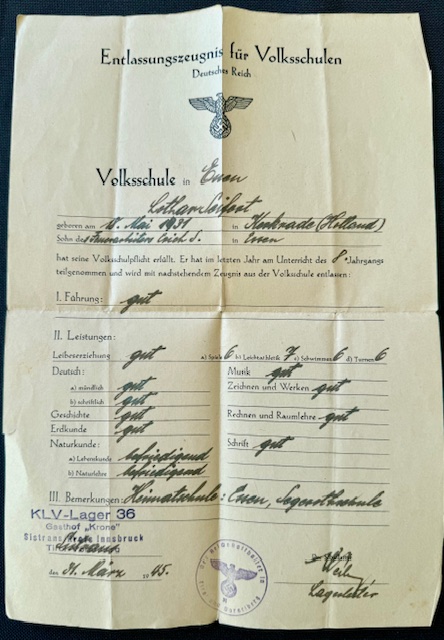 Entlassungszeugnis für Volksschulen
Deutsches Reich
Volksschule in Essen
Lothar Seifert
geboren am 18. Mai 1931 in Kerkrade (Holland)
Sohn des Erich S. in Essen
hat seine Volksschulpflicht erfüllt. Er hat im letzten Jahr am Unterricht des 8. Jahrgangs
teilgenommen und wird mit nachstehendem Zeugnis aus der Volksschule entlassen:
I. Führung: gut
II. Leistungen:
Leibeserziehung gut a) Spiele 6 b) Leichtathletik 7 c) Schwimmen 6 d) Turnen 6
Deutsch: Musik gut
a) mündlich gut Zeichnen und Werken gut
b) schriftlich gut
Geschichte gut Rechnen und Raumlehre gut
Erdkunde gut
Naturkunde: Schrift gut
a) Lebenskunde befriedigend
b) Naturlehre befriedigend
III. Bemerkungen: Heimatschule: Essen, Segerothschule
KLV-Lager 36
Gasthof „Krone"
Sistrans Innsbruck
den 31. März 1945.
Lagerleiter